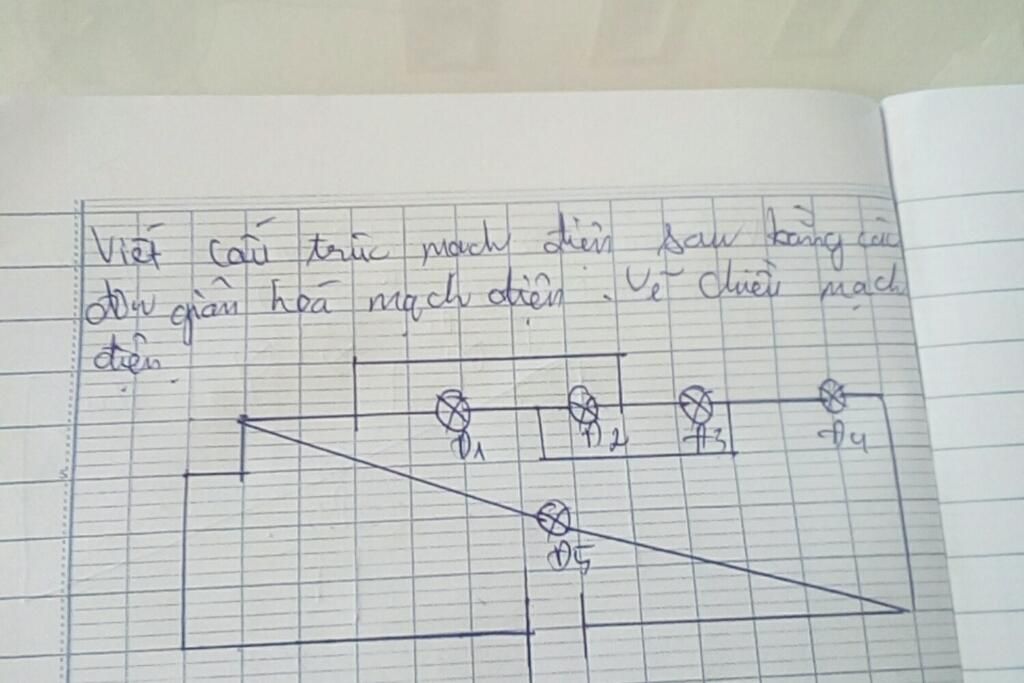 Viết cấu trúc mạch điện sau bằng các
đơn giản hoá mạch điện. Vẽ chiều mạch
điện.
Đ1 Đ2 Đ3 Đ4
Đ5